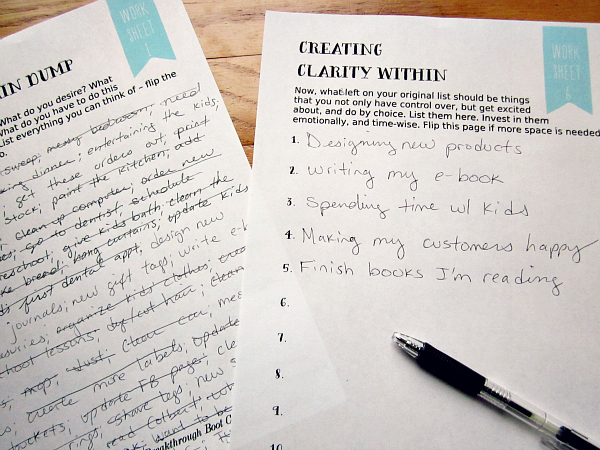 WORK
SHEET
1
IN DUMP
What do you desire? What
What do you have to do this
List everything you can think of – flip the
sweep; messy bedroom; need
dinner; entertaining the kids;
get these orders out; print
stock; paint the kitchen; add
clean up computer; order new
go to dentist; schedule
preschool; give kids bath; clean the
bread; hang curtains; update kids
first dental appt; design new
journals; new gift tags; write e-b
organize kids clothes;
lessons; dye/cut hair; clean
mop; dust; clean car;
create more labels; update
update FB page; cle
tags; new
read Colbert;
want to be
Breakthrough Boot C
WORK
SHEET
6
CREATING
CLARITY WITHIN
Now, what left on your original list should be things
that you not only have control over, but get excited
about, and do by choice. List them here. Invest in them
emotionally, and time-wise. Flip this page if more space is needed
1. Designing new products
2. Writing my e-book
3. Spending time w/ kids
4. Making my customers happy
5. Finish books I'm reading
6.
7.
8.
9.
10